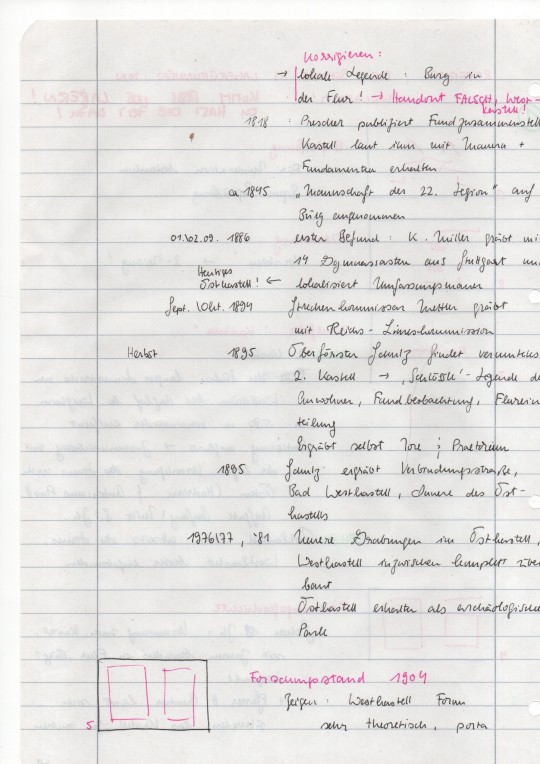 Korrigieren:
→ lokale Legende: Burg in
der Flur! → Handout FALSCH, West-
kastell!
1818: Prescher publiziert Fundzusammenstell
Kastell laut ihm mit Mauern +
Fundamenten erhalten
ca 1845 „Mannschaft der 22. Legion" auf
Burg angenommen
01.\02.09. 1886 erster Befund: K. Miller gräbt mi
14 Gymnasiasten aus Stuttgart un
Heutiges
Ostkastell! ← lokalisiert Umfassungsmauer
Sept. \Okt. 1894 Streckenkommissar Mettler gräbt
mit Reichs-Limeskommission
Herbst 1895 Oberförster findet vermutetes
2. Kastell → „Schlössle"-Legende de
Anwohner, Fundbeobachtung, Flurein
teilung
Ergräbt selbst Tore & Praetorium
1895 ergräbt Verbindungsstraße,
Bad Westkastell, Innere des Ost-
kastells
1976\77, '81 Neuere Grabungen im Ostkastell,
Westkastell inzwischen komplett über
baut
Ostkastell erhalten als archäologische
Park
Forschungsstand 1904
Zeigen: Westkastell Form
5 sehr theoretisch, porta